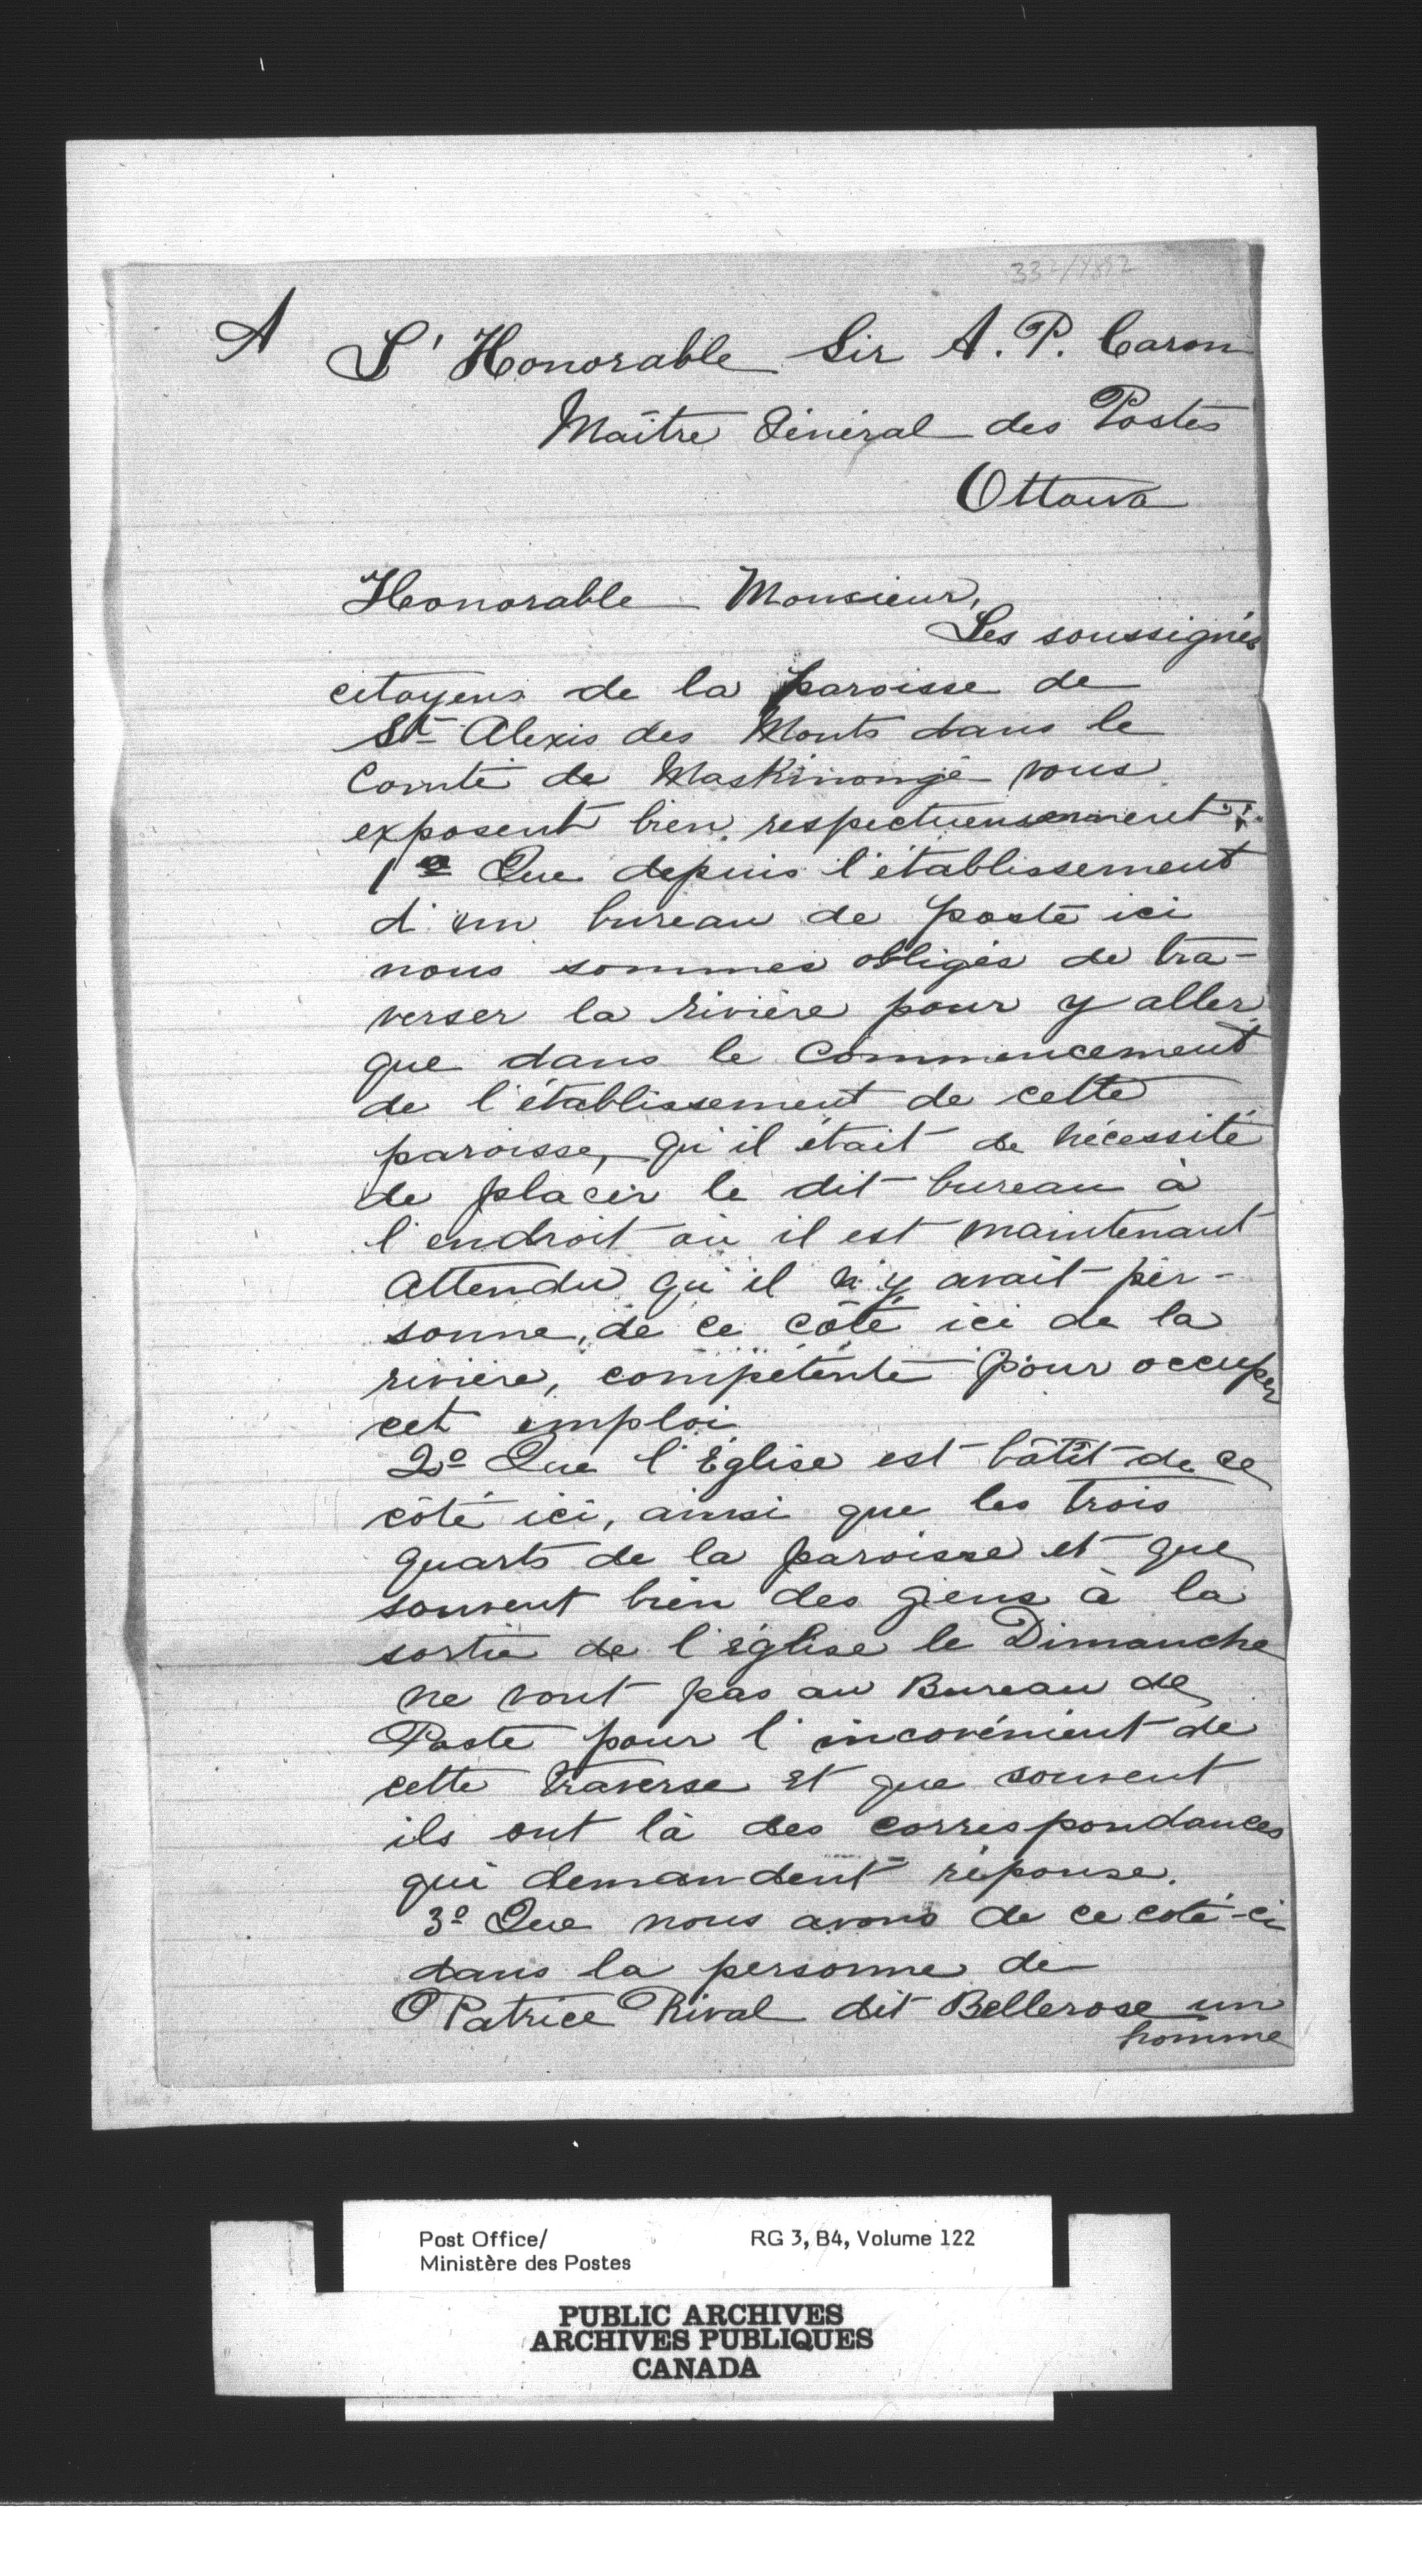 A L'Honorable Sir A. P. Caron
Maître Général des Postes
Ottawa
Honorable Monsieur,
Les soussignés
citoyens de la paroisse de
St Alexis des Monts dans le
Comté de Maskinongé vous
exposent bien respectueusement:
1o Que depuis l'établissement
d'un bureau de poste ici
nous sommes obligés de tra-
verser la rivière pour y aller
que dans le commencement
de l'établissement de cette
paroisse, qu'il était de nécessité
de placer le dit bureau à
l'endroit où il est maintenant
attendu qu'il n'y avait per-
sonne, de ce côté ici de la
rivière, compétente pour occuper
cet emploi
2o Que l'Église est bâtit de ce
côté ici, ainsi que les trois
quarts de la paroisse et que
souvent bien des gens à la
sortie de l'église le Dimanche
ne vont pas au Bureau de
Poste pour l'incovénient de
cette traverse et que souvent
ils ont là des correspondances
qui demandent réponse.
3o Que nous avons de ce coté-ci
dans la personne de
Patrice Rival dit Bellerose un
homme
Post Office/ RG 3, B4, Volume 122
Ministère des Postes
PUBLIC ARCHIVES
ARCHIVES PUBLIQUES
CANADA